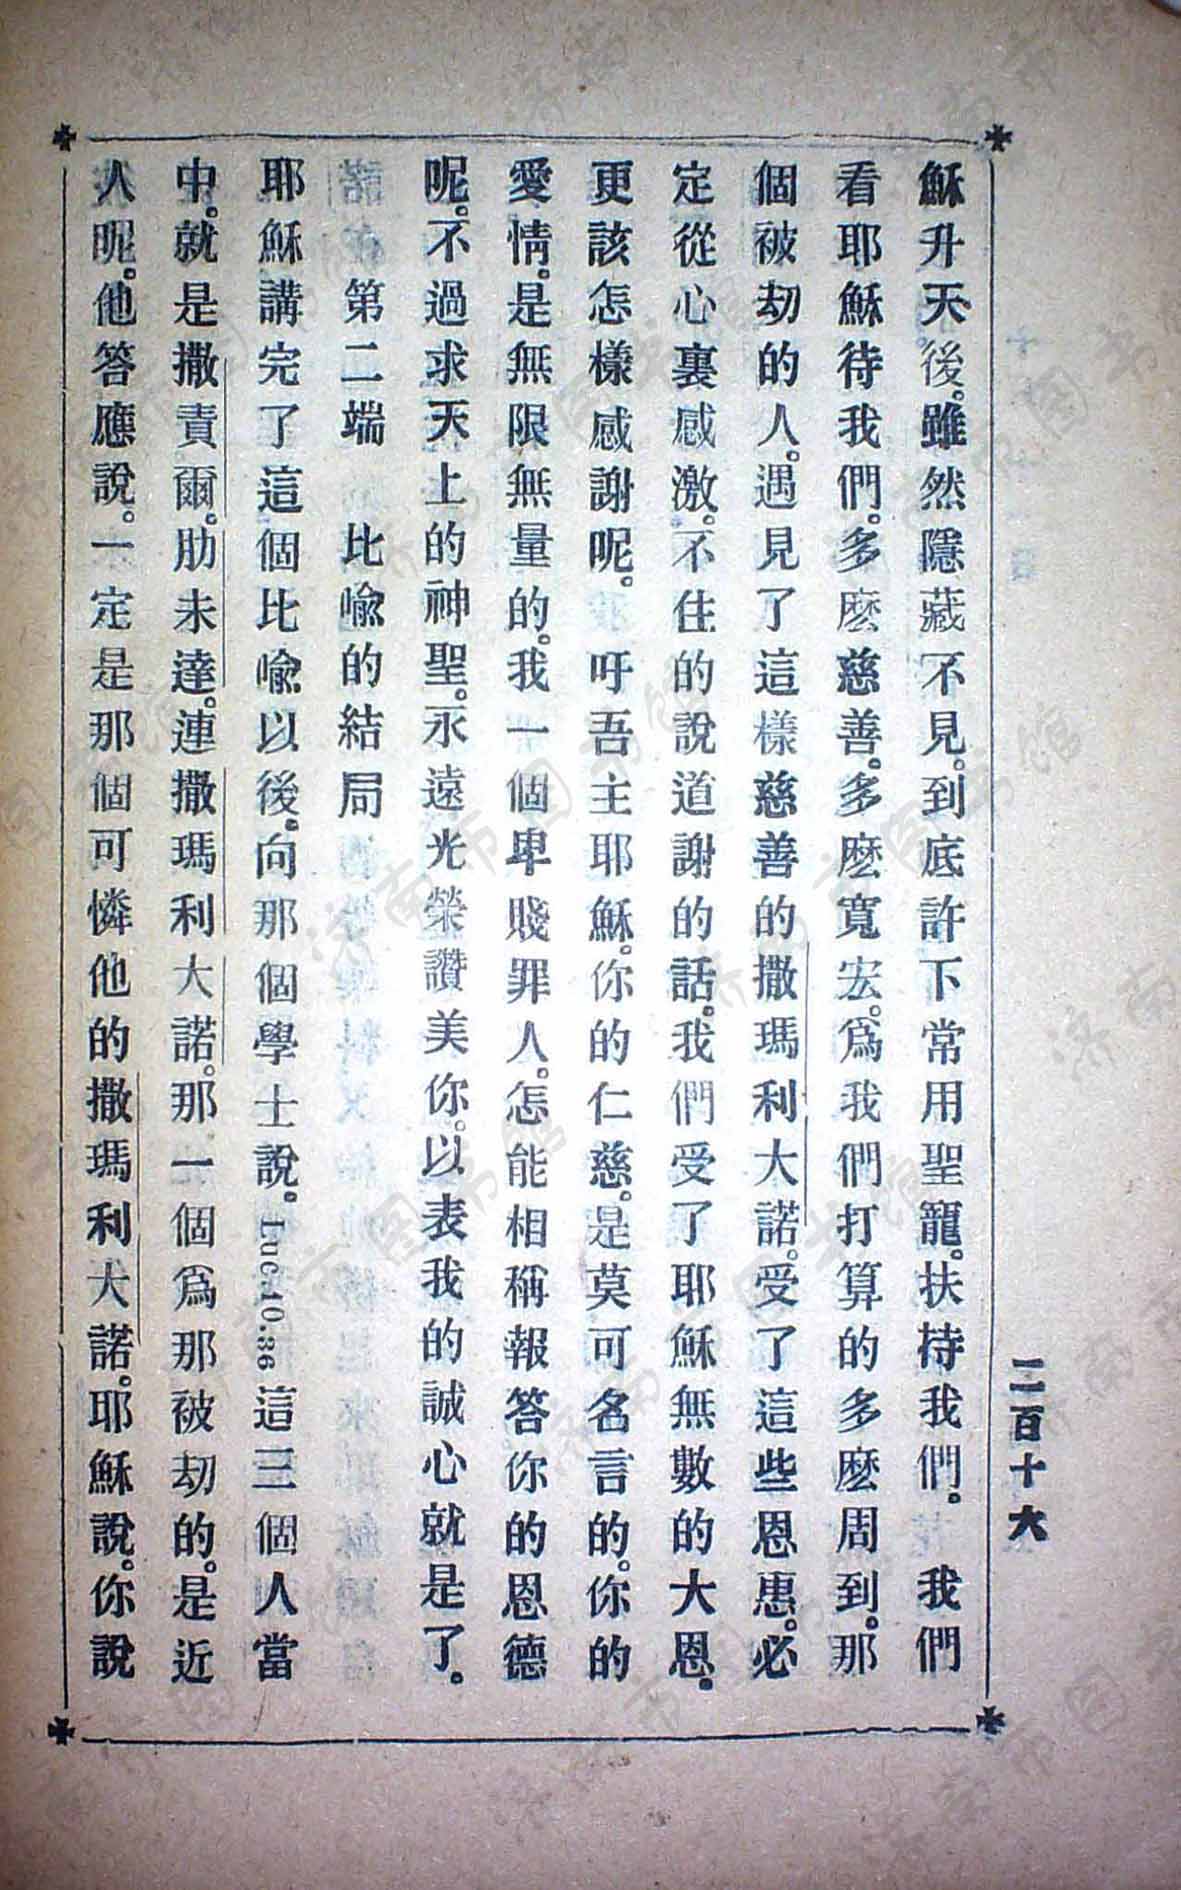 二百十六
穌升天後。雖然隱藏不見。到底許下常用聖寵。扶持我們。　我們
看耶穌待我們。多麽慈善。多麽寬宏。爲我們打算的多麽周到。那
個被劫的人。遇見了這樣慈善的撒瑪利大諾。受了這些恩惠。必
定從心裏感激。不住的說道謝的話。我們受了耶穌無數的大恩。
更該怎樣感謝呢。　吁吾主耶穌。你的仁慈。是莫可名言的。你的
愛情。是無限無量的。我一個卑賤罪人。怎能相稱報答你的恩德
呢。不過求天上的神聖。永遠光榮讚美你。以表我的誠心就是了。
第二端　比喩的結局
耶穌講完了這個比喩以後。向那個學士說。Luc.10.36 這三個人當
中。就是撒責爾。肋未達。連撒瑪利大諾。那一個爲那被劫的。是近
人呢。他答應說。一定是那個可憐他的撒瑪利大諾。耶穌說。你說